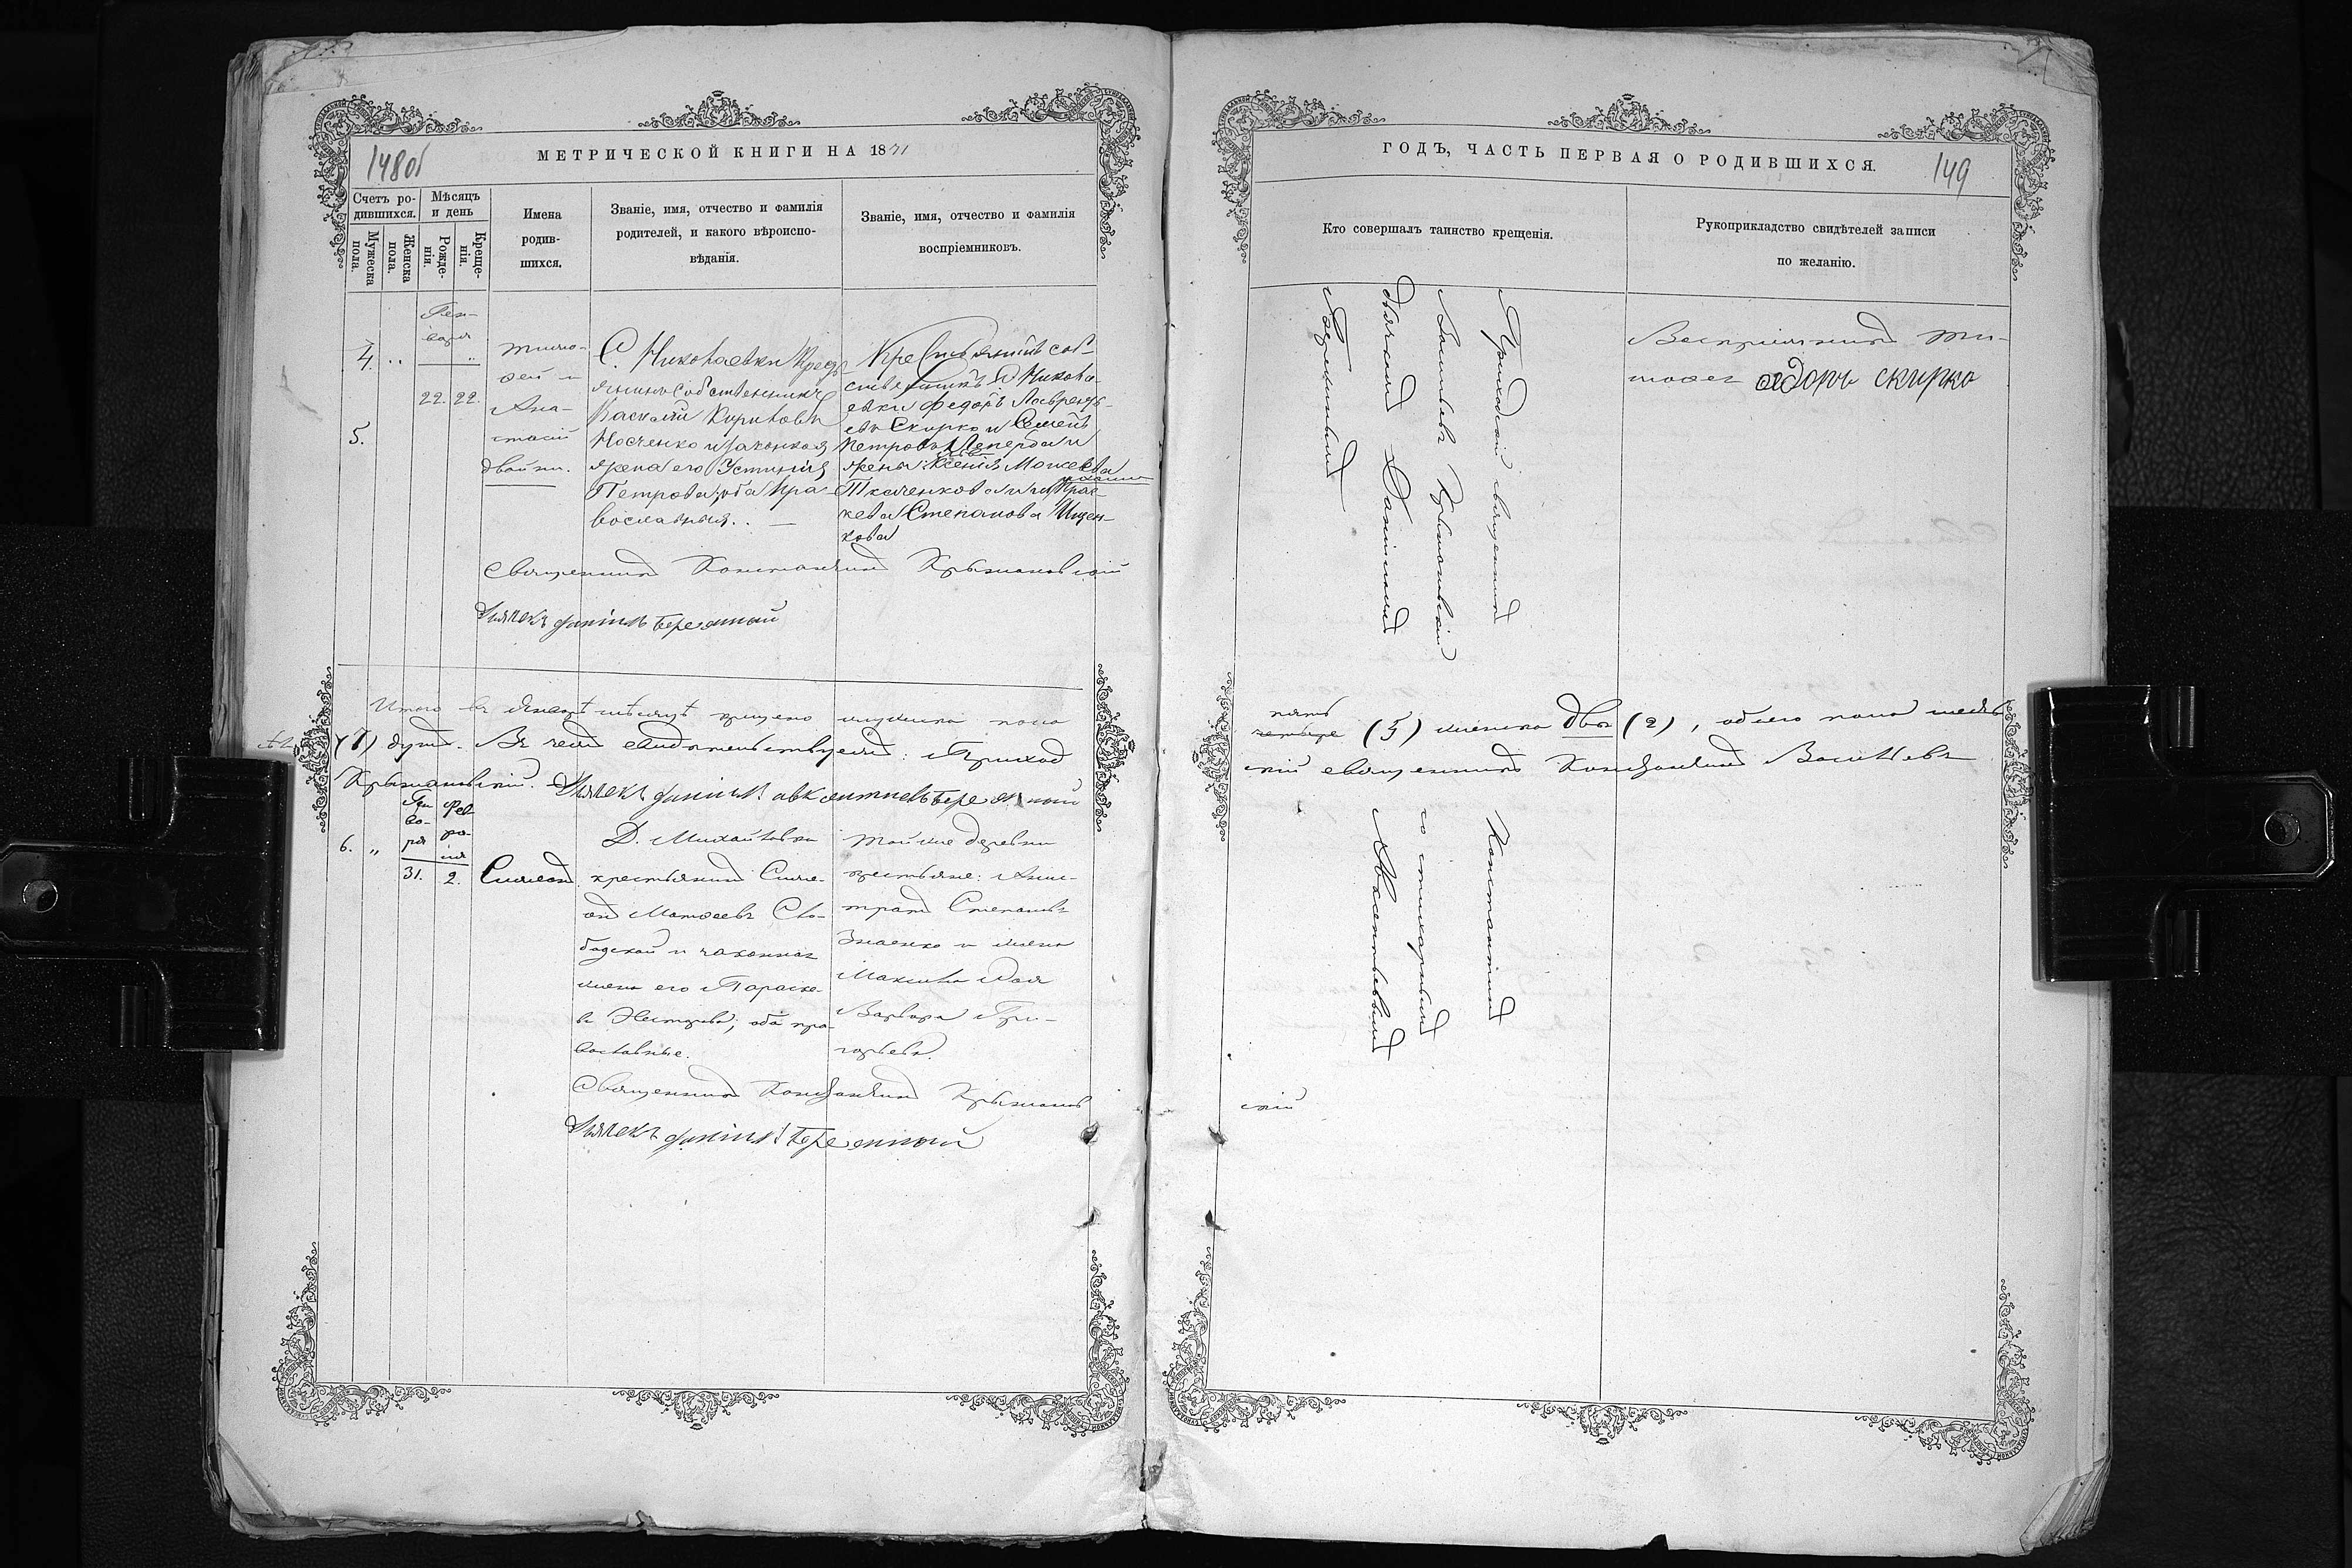 148об
МЕТРИЧЕСКОЙ КНИГИ НА 1871
Счетъ ро-
дившихся.
Мужеска
пола.
Женска
пола.
Мѣсяцъ
и день
Рожде-
нія.
Креще-
нія.
Имена
родив-
шихся.
Званіе, имя, отчество и фамилія
родителей, и какого вѣроиспо-
вѣданія.
Званіе, имя, отчество и фамилія
воспріемниковъ.
4.
5.
Ген-
варя
22. 22.
Тимо-
ѳей и
Ана-
стасій
двойни.
С. Николаевки Кресть
янинъ Собственникъ
Василій Кириловъ
Носченко и законная
жена его Устинія
Петрова, оба пра-
вославныя.
Крестьянинъ соб-
ственникъ с. Никола-
евки Федоръ Лаврентьевъ
Скирко и Семенъ
Петровъ
жены: Ксенія Моисеева
Ткаченкова и Прас-
кева Степанова Ищен-
кова
Священникъ Константинъ Крыжановскій
Дьячекъ Даніилъ Бережный
Итого въ Январѣ мѣсяцѣ крещено мужеска пола
(7) душъ. Въ чемъ свидѣтельствуемъ: Приход
Крыжановскій. Дьячекъ Даніилъ Авксентіевъ Бережный
6. „
Ян
ва-
ря
31.
Фев
ра-
ля
2.
Симеонъ
Д. Михайловки
крестьянинъ Симе-
онъ Матѳеевъ Сло-
бодской и законная
жена его Параске-
ва Нестерова; оба пра-
вославные.
Той же деревни
крестьяне: Анис-
тратъ Степановъ
Зноенко и жена
Максима
Варвара Гри-
горьева.
Священникъ Константинъ Крыжанов
Дьячекъ Даніилъ Бережный
ГОДЪ, ЧАСТЬ ПЕРВАЯ О РОДИВШИХСЯ.
149
Кто совершалъ таинство крещенія.
Рукоприкладство свидѣтелей записи
по желанію.
Приходскій священникъ
Васильевъ Крыжановскій
дьячкомъ Даніиломъ
Бережнымъ
Воспріемникъ Ти-
моѳея ѳдоръ скирко
пять
четыре (5) женска два (2), обоего пола семь
скій священникъ Константинъ Васильевъ
Константинъ
со стихарнымъ
Авксентьевымъ
скій